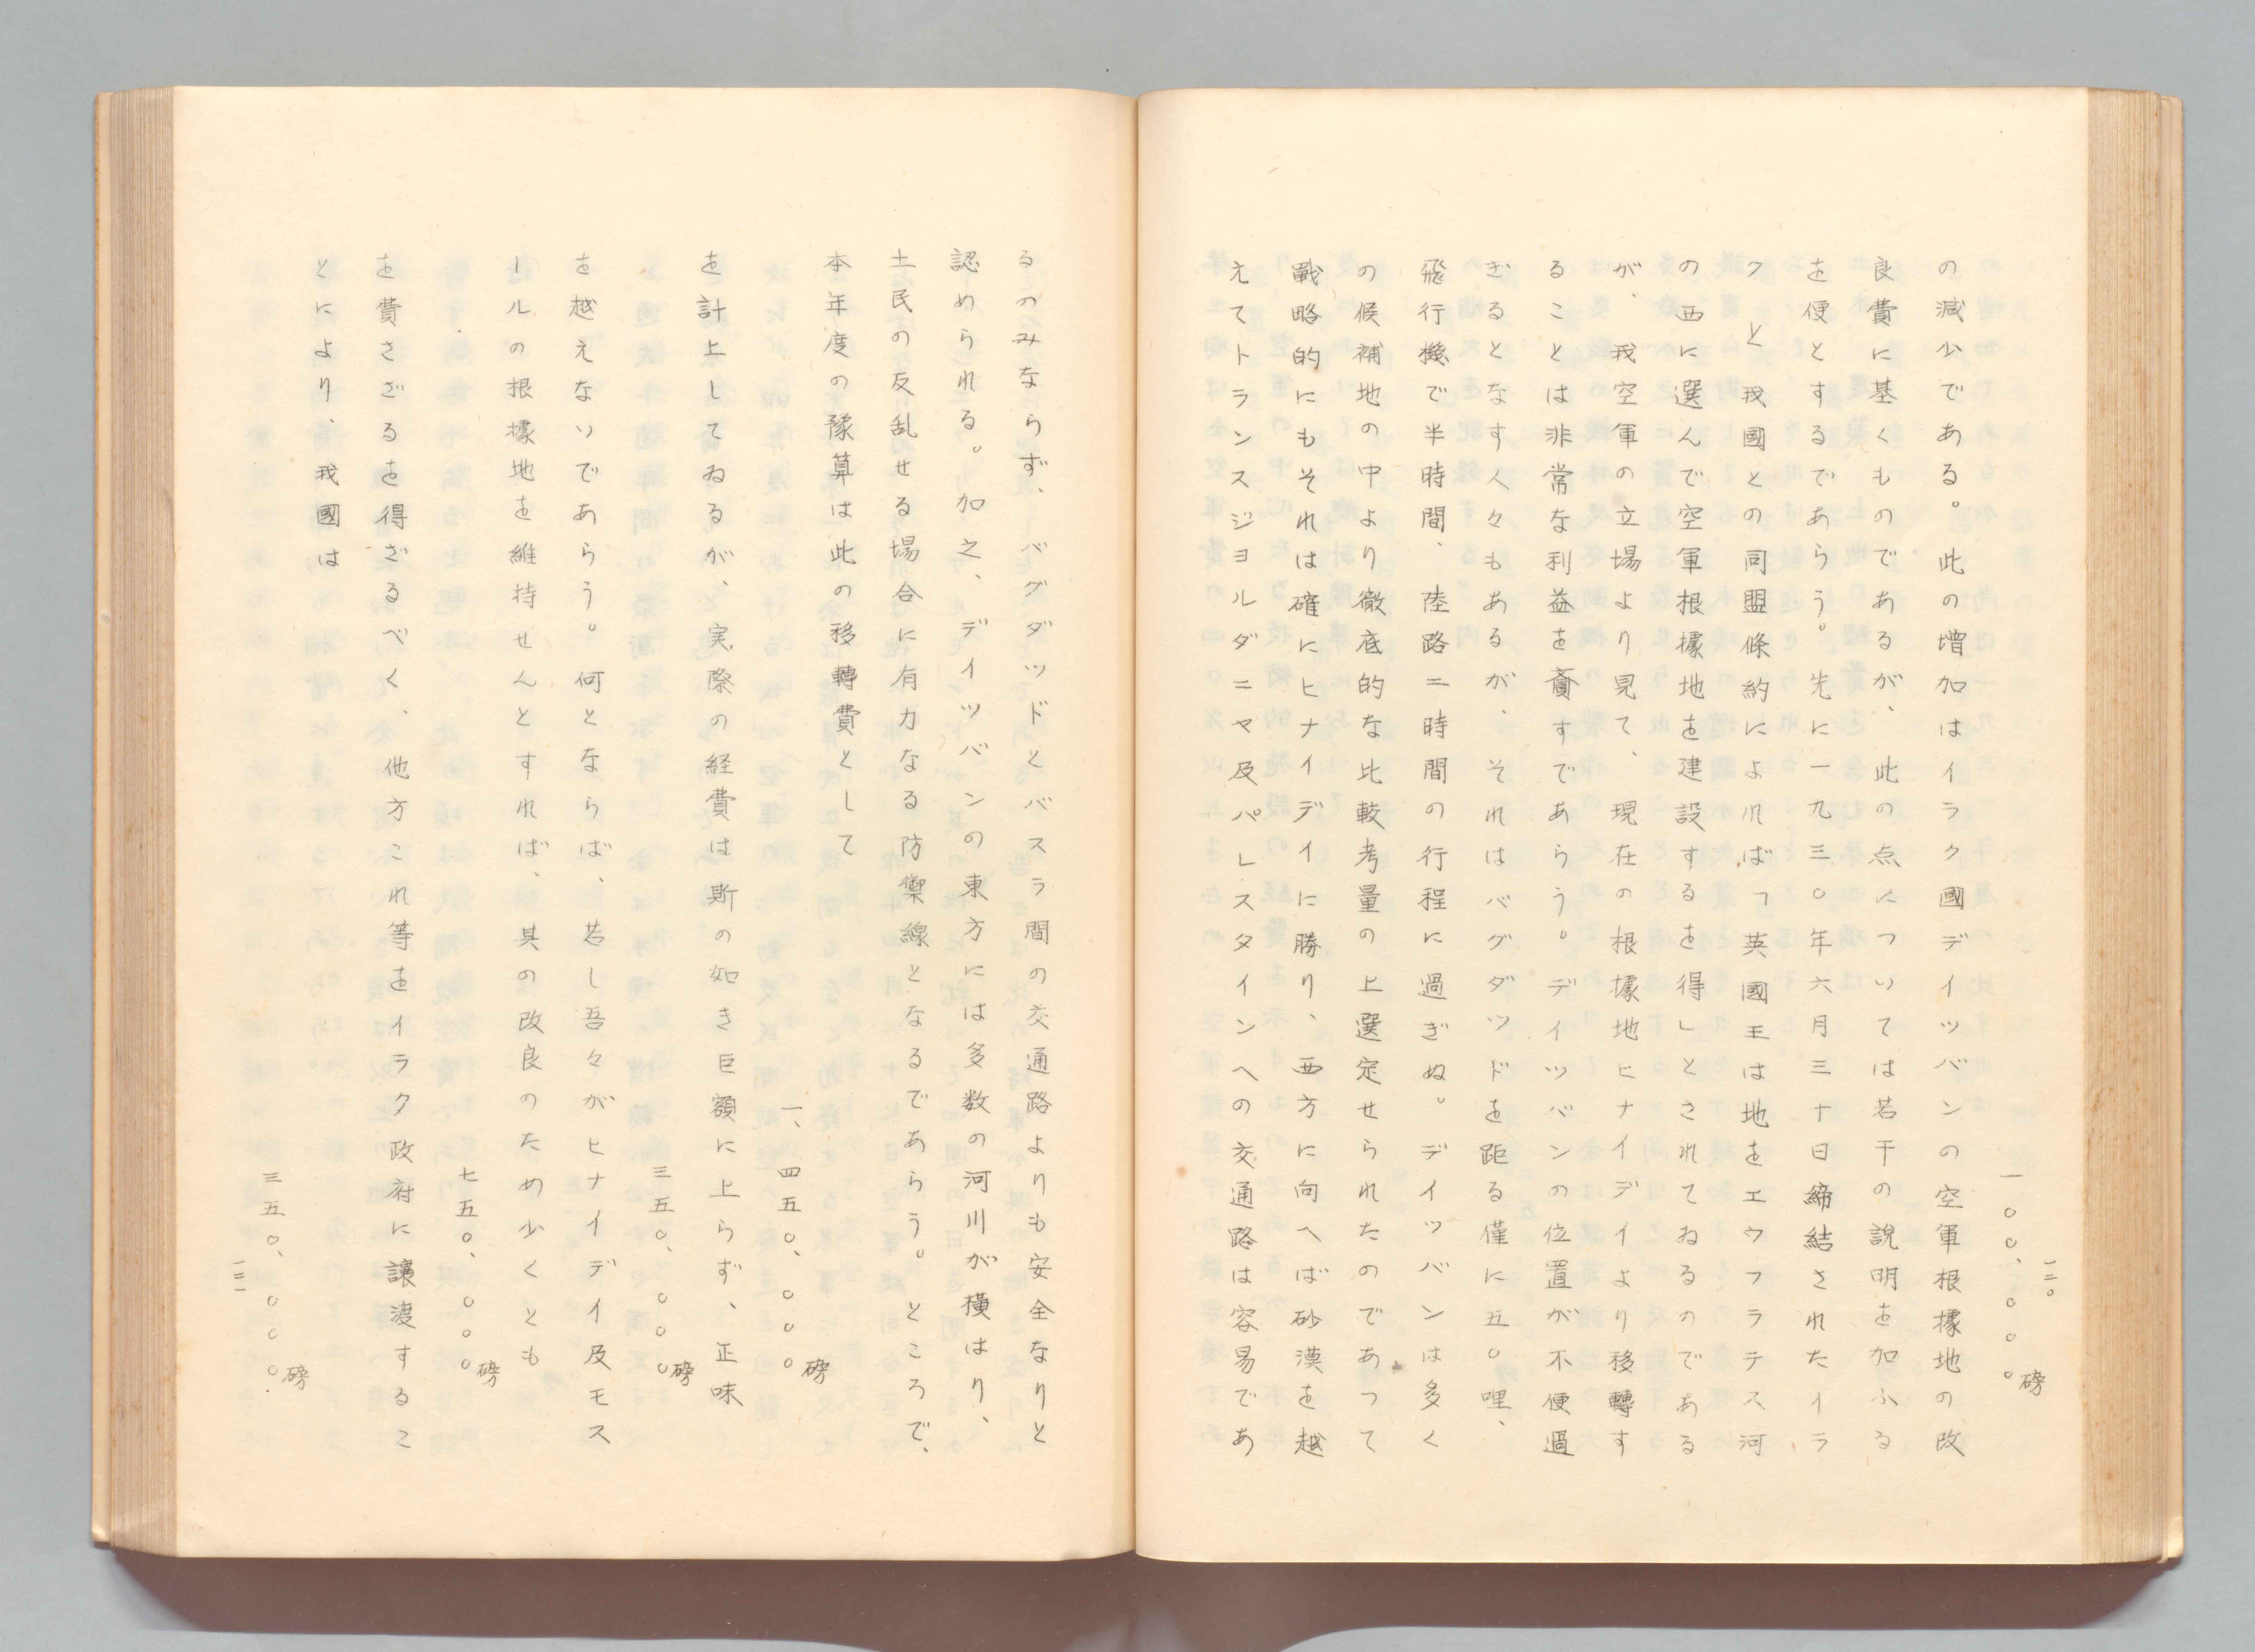 一二〇
一〇〇、〇〇〇磅
の減少である。此の増加はイラク國デイツバンの空軍根據地の改
良費に基くものであるが、此の点については若干の説明を加ふる
を便とするであらう。先に一九三〇年六月三十日締結されたイラ
クと我國との同盟條約によれば「英國王は地をエウフラテス河
の西に選んで空軍根據地を建設するを得」とされてゐるのである
が、我空軍の立場より見て、現在の根據地ヒナイデイより移轉す
ることは非常な利益を齎すであらう。デイツバンの位置が不便過
ぎるとなす人々もあるが、それはバグダツドを距る僅に五〇哩、
飛行機で半時間、陸路二時間の行程に過ぎぬ。デイツバンは多く
の候補地の中より徹底的な比較考量の上選定せられたのであつて
戰略的にもそれは確にヒナイデイに勝り、西方に向へば砂漠を越
えてトランスジヨルダニヤ及パレスタインへの交通路は容易であ
るのみならず、バグダツドとバスラ間の交通路よりも安全なりと
認められる。加之、デイツバンの東方には多数の河川が横はり、
土民の反乱せる場合に有力なる防禦線となるであらう。ところで、
本年度の豫算は此の移轉費として
一、四五〇、〇〇〇磅
を計上してゐるが、実際の経費は斯の如き巨額に上らず、正味
三五〇、〇〇〇磅
を越えないであらう。何とならば、若し吾々がヒナイデイ及モス
ールの根據地を維持せんとすれば、其の改良のため少くとも
七五〇、〇〇〇磅
を費さざるを得ざるべく、他方これ等をイラク政府に讓渡するこ
とにより、我國は
三五〇、〇〇〇磅
一二一